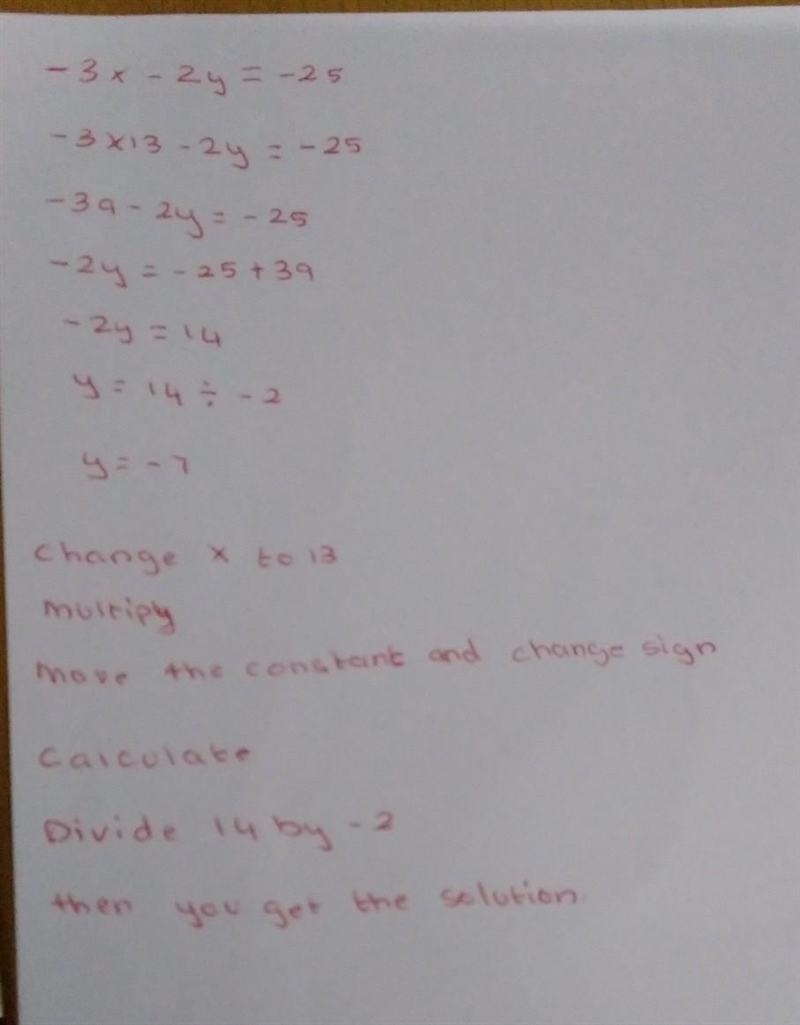 -3x - 2y = -25
-3×13 - 2y = -25
-39 - 2y = -25
-2y = -25 + 39
-2y = 14
y = 14 ÷ -2
y = -7
Change x to 13
multiply
move the constant and change sign
Calculate
Divide 14 by -2
then you get the solution.